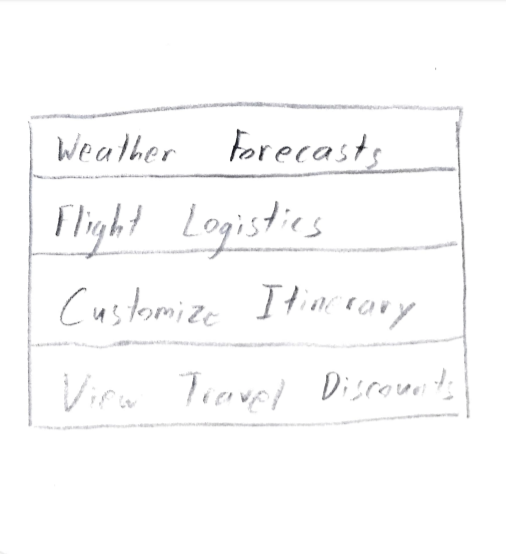 Weather Forecasts
Flight Logistics
Customize Itinerary
View Travel Discounts